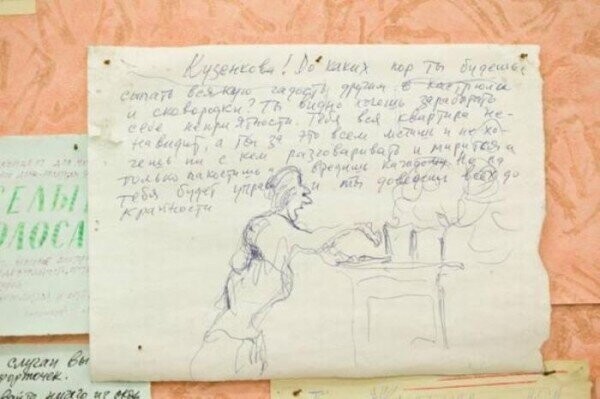 Кузенкова! До каких пор ты будешь
сыпать всякую гадость другим в кастрюли
и сковородки? Ты видно хочешь заработать
себе неприятность. Тебя вся квартира не-
навидит, а ты за это всем мстишь и не хо-
чешь ни с кем разговаривать и мириться а
только пакостишь и вредишь каждому. Но на
тебя будет управа и ты доведешь всех до
крайности
СЕЛЫ
ОЛОСА
случаи вы
форточек.